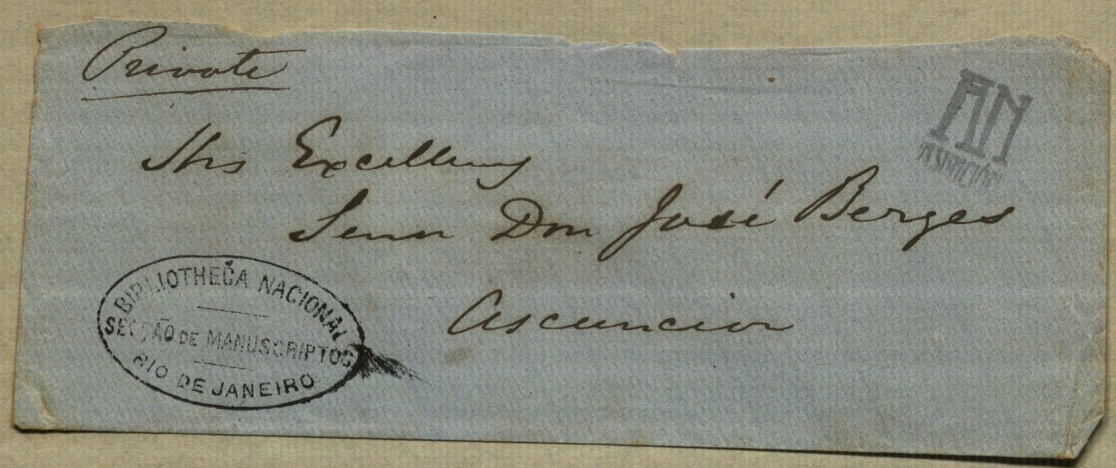 Private
AN
ASUNCIÓN
His Excellency
Senor Don José Berges
Ascuncion
BIBLIOTHECA NACIONAL
SECÇÃO DE MANUSCRIPTOS
RIO DE JANEIRO